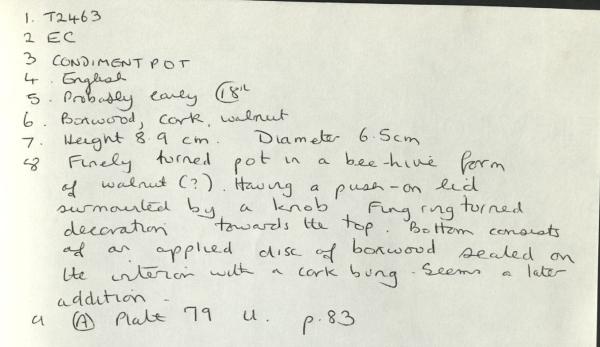 1. T2463
2 EC
3 CONDIMENT POT
4. English
5. Probably early 18th
6. Boxwood, cork, walnut
7. Height 8.9 cm. Diameter 6.5cm
8 Finely turned pot in a bee-hive form
of walnut (?). Having a push-on lid
surmounted by a knob Fine ring turned
decoration towards the top. Bottom consists
of an applied disc of boxwood sealed on
the interior with a cork bung. Seems a later
addition.
9 (A) Plate 79 U. p.83